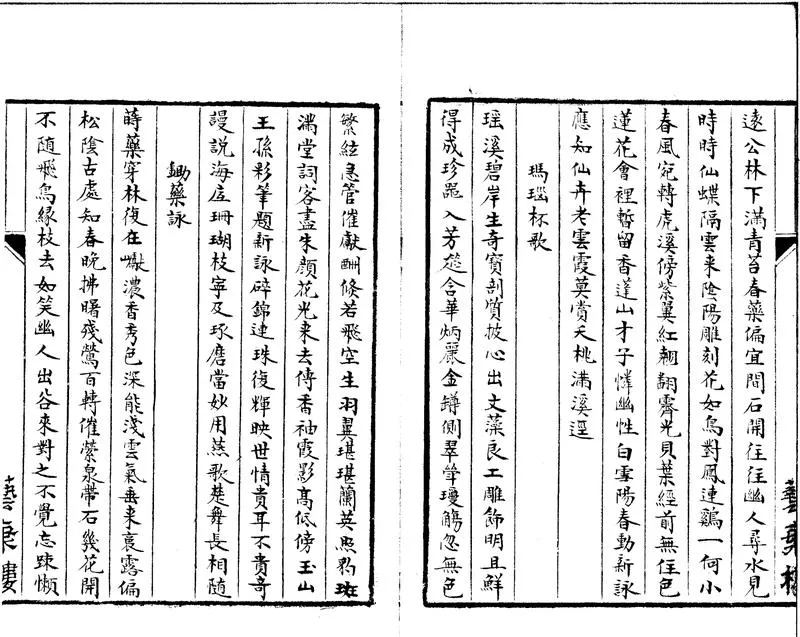 遠公林下滿青苔春藥偏宜間石開往往幽人尋水見
時時仙蝶隔雲来陰陽雕刻花如鳥對鳳連鷄一何小
春風宛轉虎溪傍紫翼紅翹翻霽光貝葉經前無住色
蓮花會裡暫留香蓬山才子憐幽性白雪陽春動新詠
應知仙卉老雲霞莫賞夭桃滿溪逕
瑪瑙杯歌
瑶溪碧岸生奇寶剖質披心出文藻良工雕飾明且鮮
得成珍噐入芳筵含華炳麗金罇側翠斝瓊觴忽無色
繁絃急管催献酬倐若飛空生羽翼堪堪蘭英照豹斑
滿堂詞客盡朱顔花光来去傳香袖霞影高低傍玉山
王孫彩筆題新詠碎錦連珠復輝映世情貴耳不貴奇
謾説海底珊瑚枝寧及琢磨當妙用燕歌楚舞長相随
鋤藥詠
蒔藥穿林復在巘濃香秀色深能淺雲氣垂来裛露偏
松陰古處知春晚拂曙殘鶯百轉催縈泉帶石幾花開
不随飛鳥緣枝去如笑幽人出谷來對之不覺忘疎懶